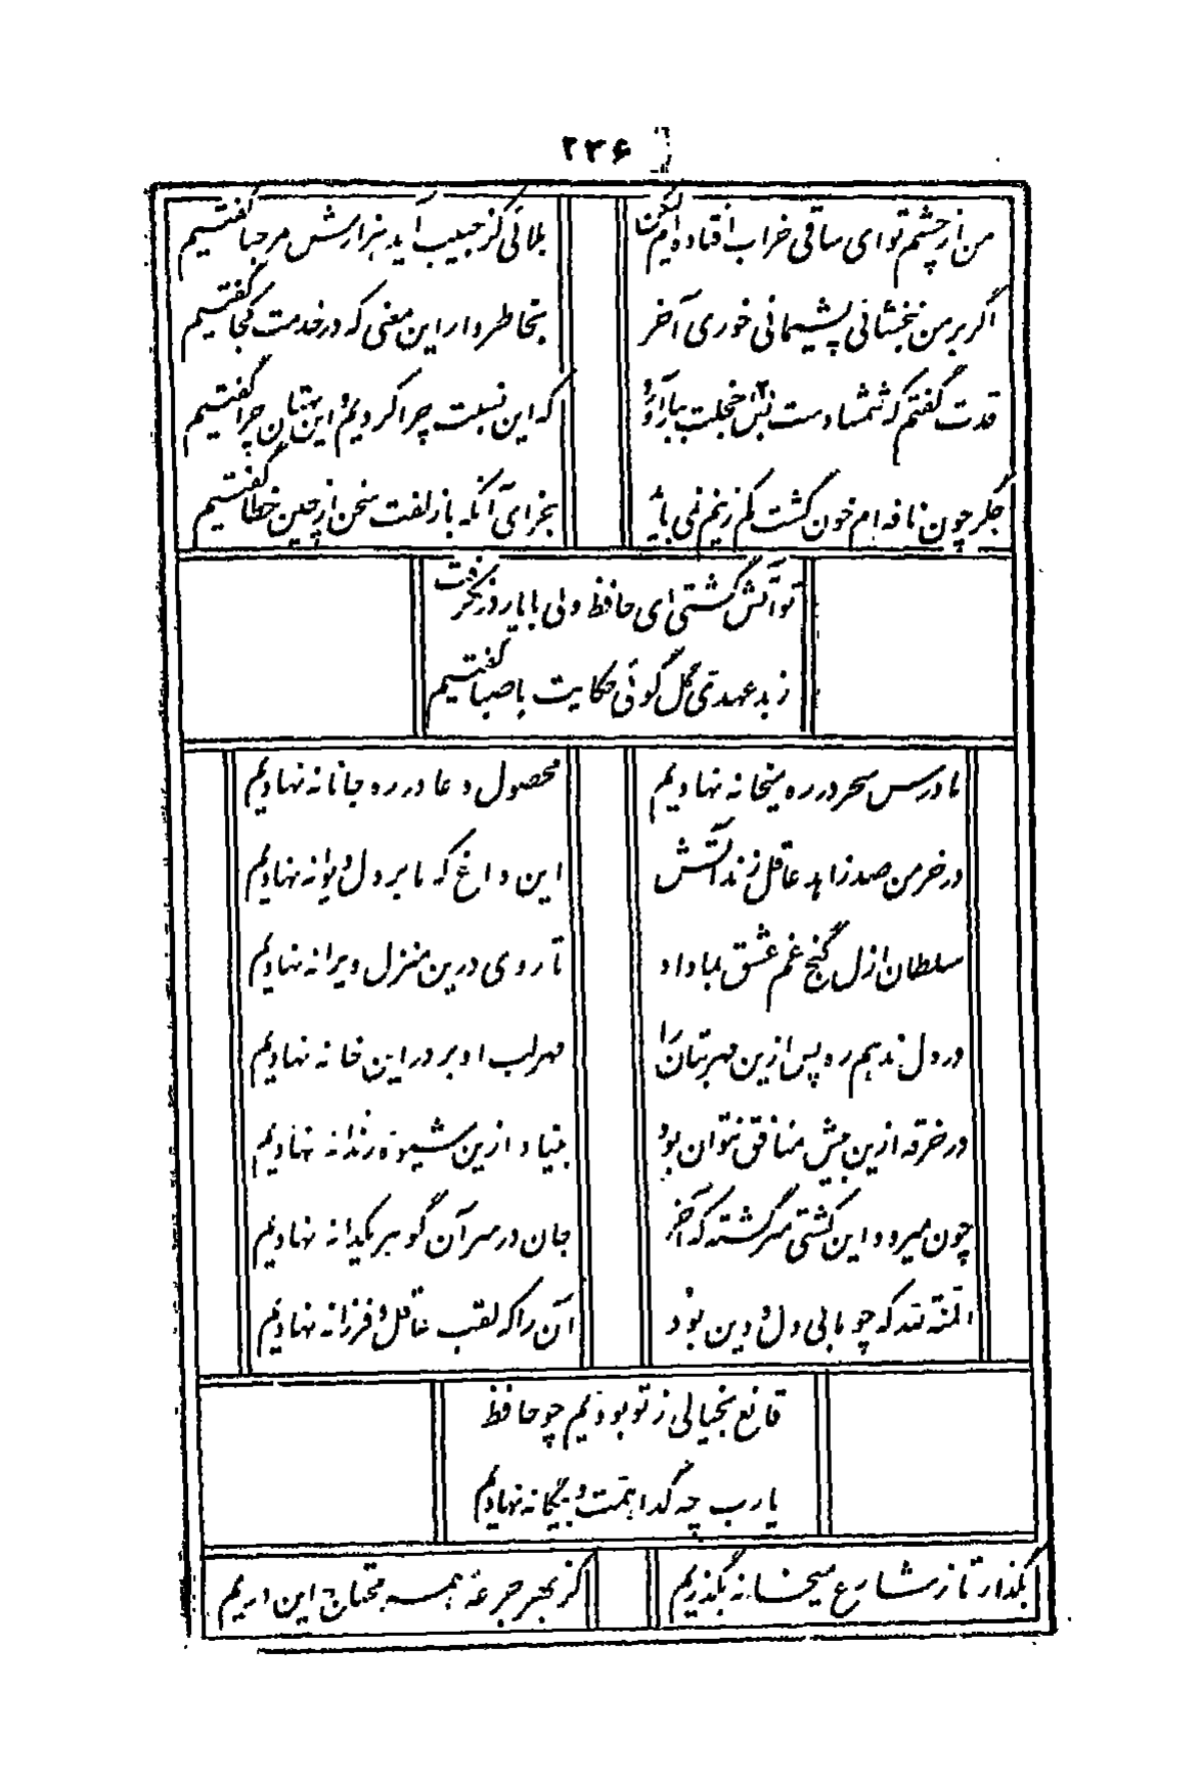 ۲۳۶
من از چشم تو ای ساقی خراب افتاده‌ام لیکن
بلائی کز حبیب آید هزارش مرحبا گفتیم
اگر بر من نبخشائی پشیمانی خوری آخر
بخاطر دار این معنی که در خدمت کجا گفتیم
قدت گفتم که شمشادست بس خجلت ببار آورد
که این نسبت چرا کردیم و این بهتان چرا گفتیم
جگر چون نافه‌ام خون گشت کم زینم نمی‌باید
جزای آنکه با زلفت سخن از چین خطا گفتیم
تو آتش گشتی ای حافظ ولی با یار در نگرفت
ز بدعهدی گل گوئی حکایت با صبا گفتیم
ما درس سحر در ره میخانه نهادیم
محصول دعا در ره جانانه نهادیم
در خرمن صد زاهد عاقل زند آتش
این داغ که ما بر دل دیوانه نهادیم
سلطان ازل گنج غم عشق بما داد
تا روی درین منزل ویرانه نهادیم
در دل ندهم ره پس ازین مهر بتان را
مهر لب او بر در این خانه نهادیم
در خرقه ازین بیش منافق نتوان بود
بنیاد ازین شیوه رندانه نهادیم
چون میرود این کشتی سرگشته که آخر
جان در سر آن گوهر یکدانه نهادیم
المنة لله که چو ما بی دل و دین بود
آن را که لقب عاقل و فرزانه نهادیم
قانع بخیالی ز تو بودیم چو حافظ
یا رب چه گدا همت و بیگانه نهادیم
بگذار تا ز شارع میخانه بگذریم
کز بهر جرعه همه محتاج این دریم